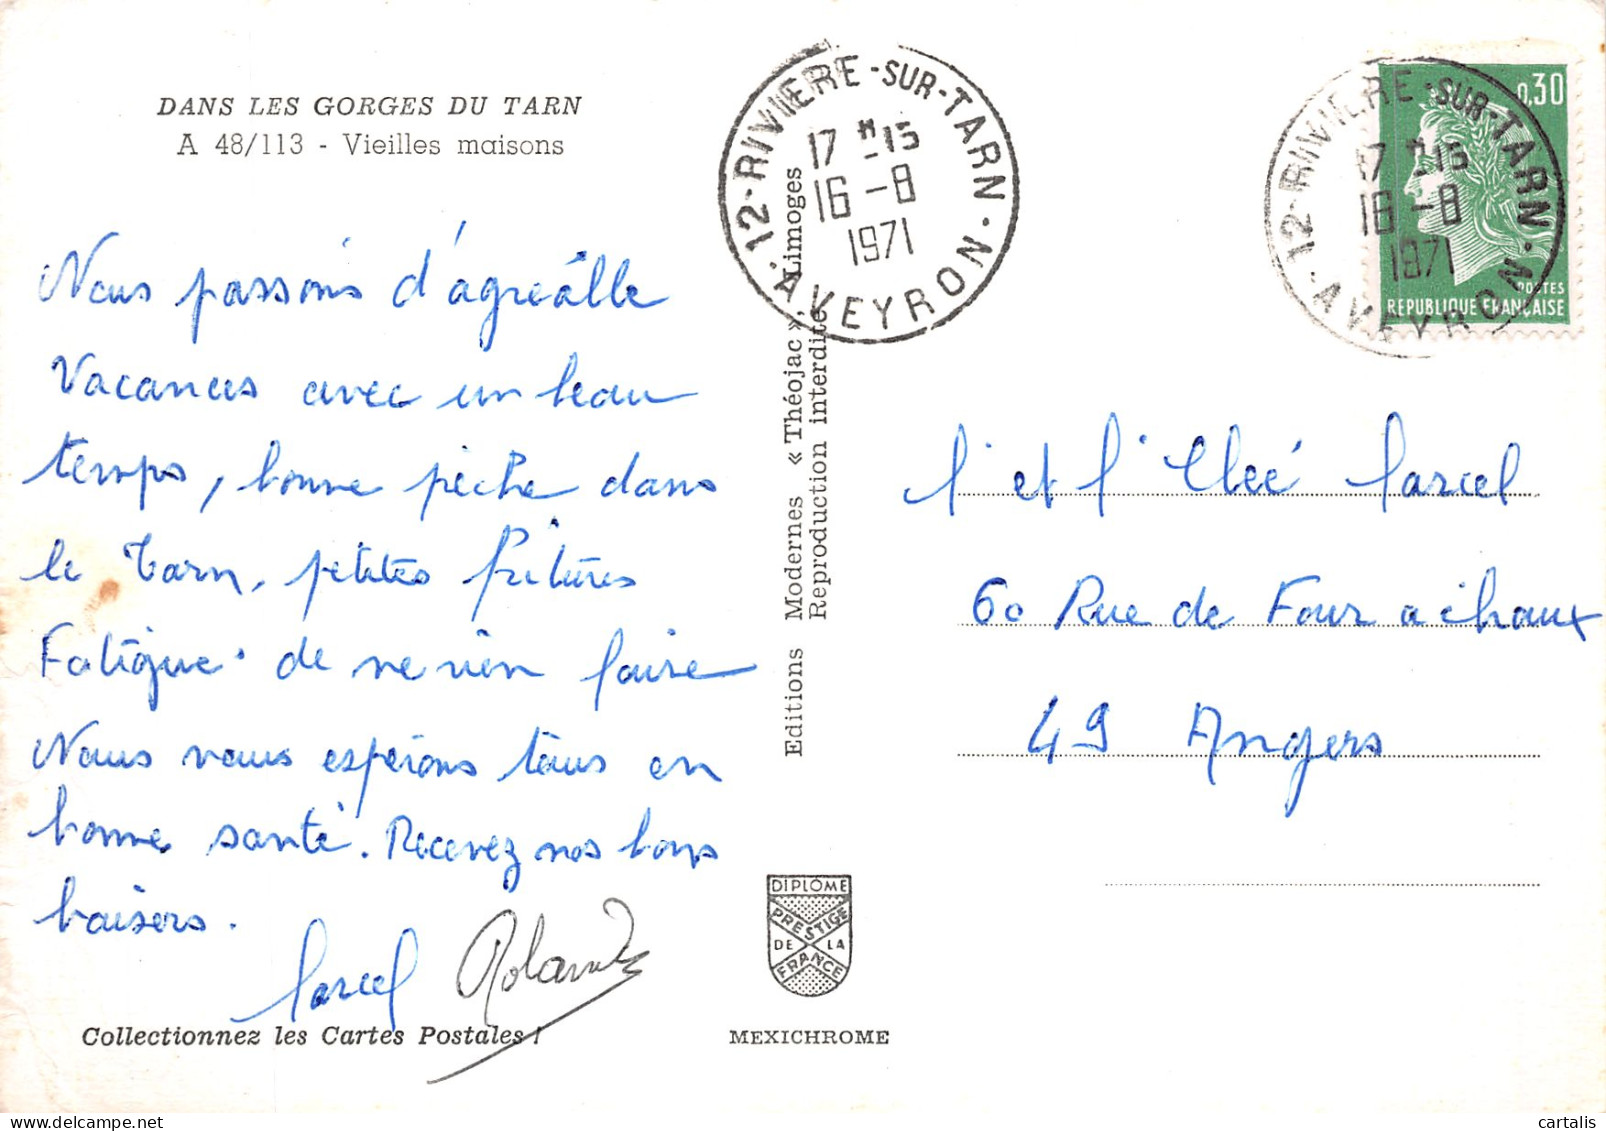 DANS LES GORGES DU TARN
A 48/113 - Vieilles maisons
Nous passons d'agréable
Vacances avec un beau
temps, bonne pêche dans
le Tarn, petites fritures
Fatigue de ne rien faire
Nous vous espérons tous en
bonne santé. Recevez nos bons
baisers.
Marcel Rolande
Collectionnez les Cartes Postales !
Editions Modernes « Théojac », Limoges
Reproduction interdite
DIPLÔME
PRESTIGE
DE LA
FRANCE
MEXICHROME
12-RIVIERE-SUR-TARN
17 H -15
16 -8
1971
AVEYRON
12-RIVIERE-SUR-TARN
17 H -15
16 -8
1971
AVEYRON
0,30
POSTES
REPUBLIQUE FRANÇAISE
M et M Marcel
60 Rue de Four a chaux
49 Angers
cartalis